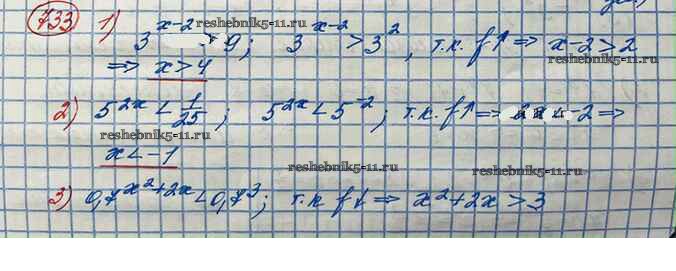 733 1) 3^(x-2) > 9; 3^(x-2) > 3^2, т.к. f↑ ⇒ x-2>2
reshebnik5-11.ru
reshebnik5-11.ru
⇒ x>4
reshebnik5-11.ru
2) 5^(2x) < 1/25; 5^(2x) < 5^(-2); т.к. f↑ ⇒ 2x < -2 ⇒
reshebnik5-11.ru
x < -1
reshebnik5-11.ru
reshebnik5-11.ru
3) 0,7^(x^2+2x) < 0,7^3; т.к f↓ ⇒ x^2+2x>3